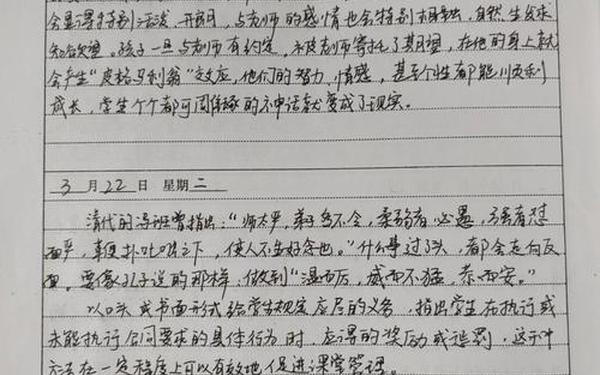 会显得特别活泼、开朗，与老师的感情也会特别相融，自然生发求
知欲望。孩子一旦与老师有约定，被老师寄托了期望，在他的身上就
会产生“皮格马利翁”效应，他们的智力、情感，甚至个性都能顺利
成长，学生个个都可周琢的神话就变成了现实。
3月22日 星期二
清代的冯班曾指出：“师太严，弟子多不令，柔弱者必愚，强者怼
而严，鞭扑叱咄之下，使人不生好念也。”什么事过了头，都会走向反
面。要像孔子说的那样，做到“温而厉，威而不猛，恭而安。”
以口头或书面形式给学生规定应尽的义务，指出学生在执行或
未能执行合同要求的具体行为时，应得的奖励或惩罚，这于冲
方法在一定程度上可以有效地促进课堂管理。